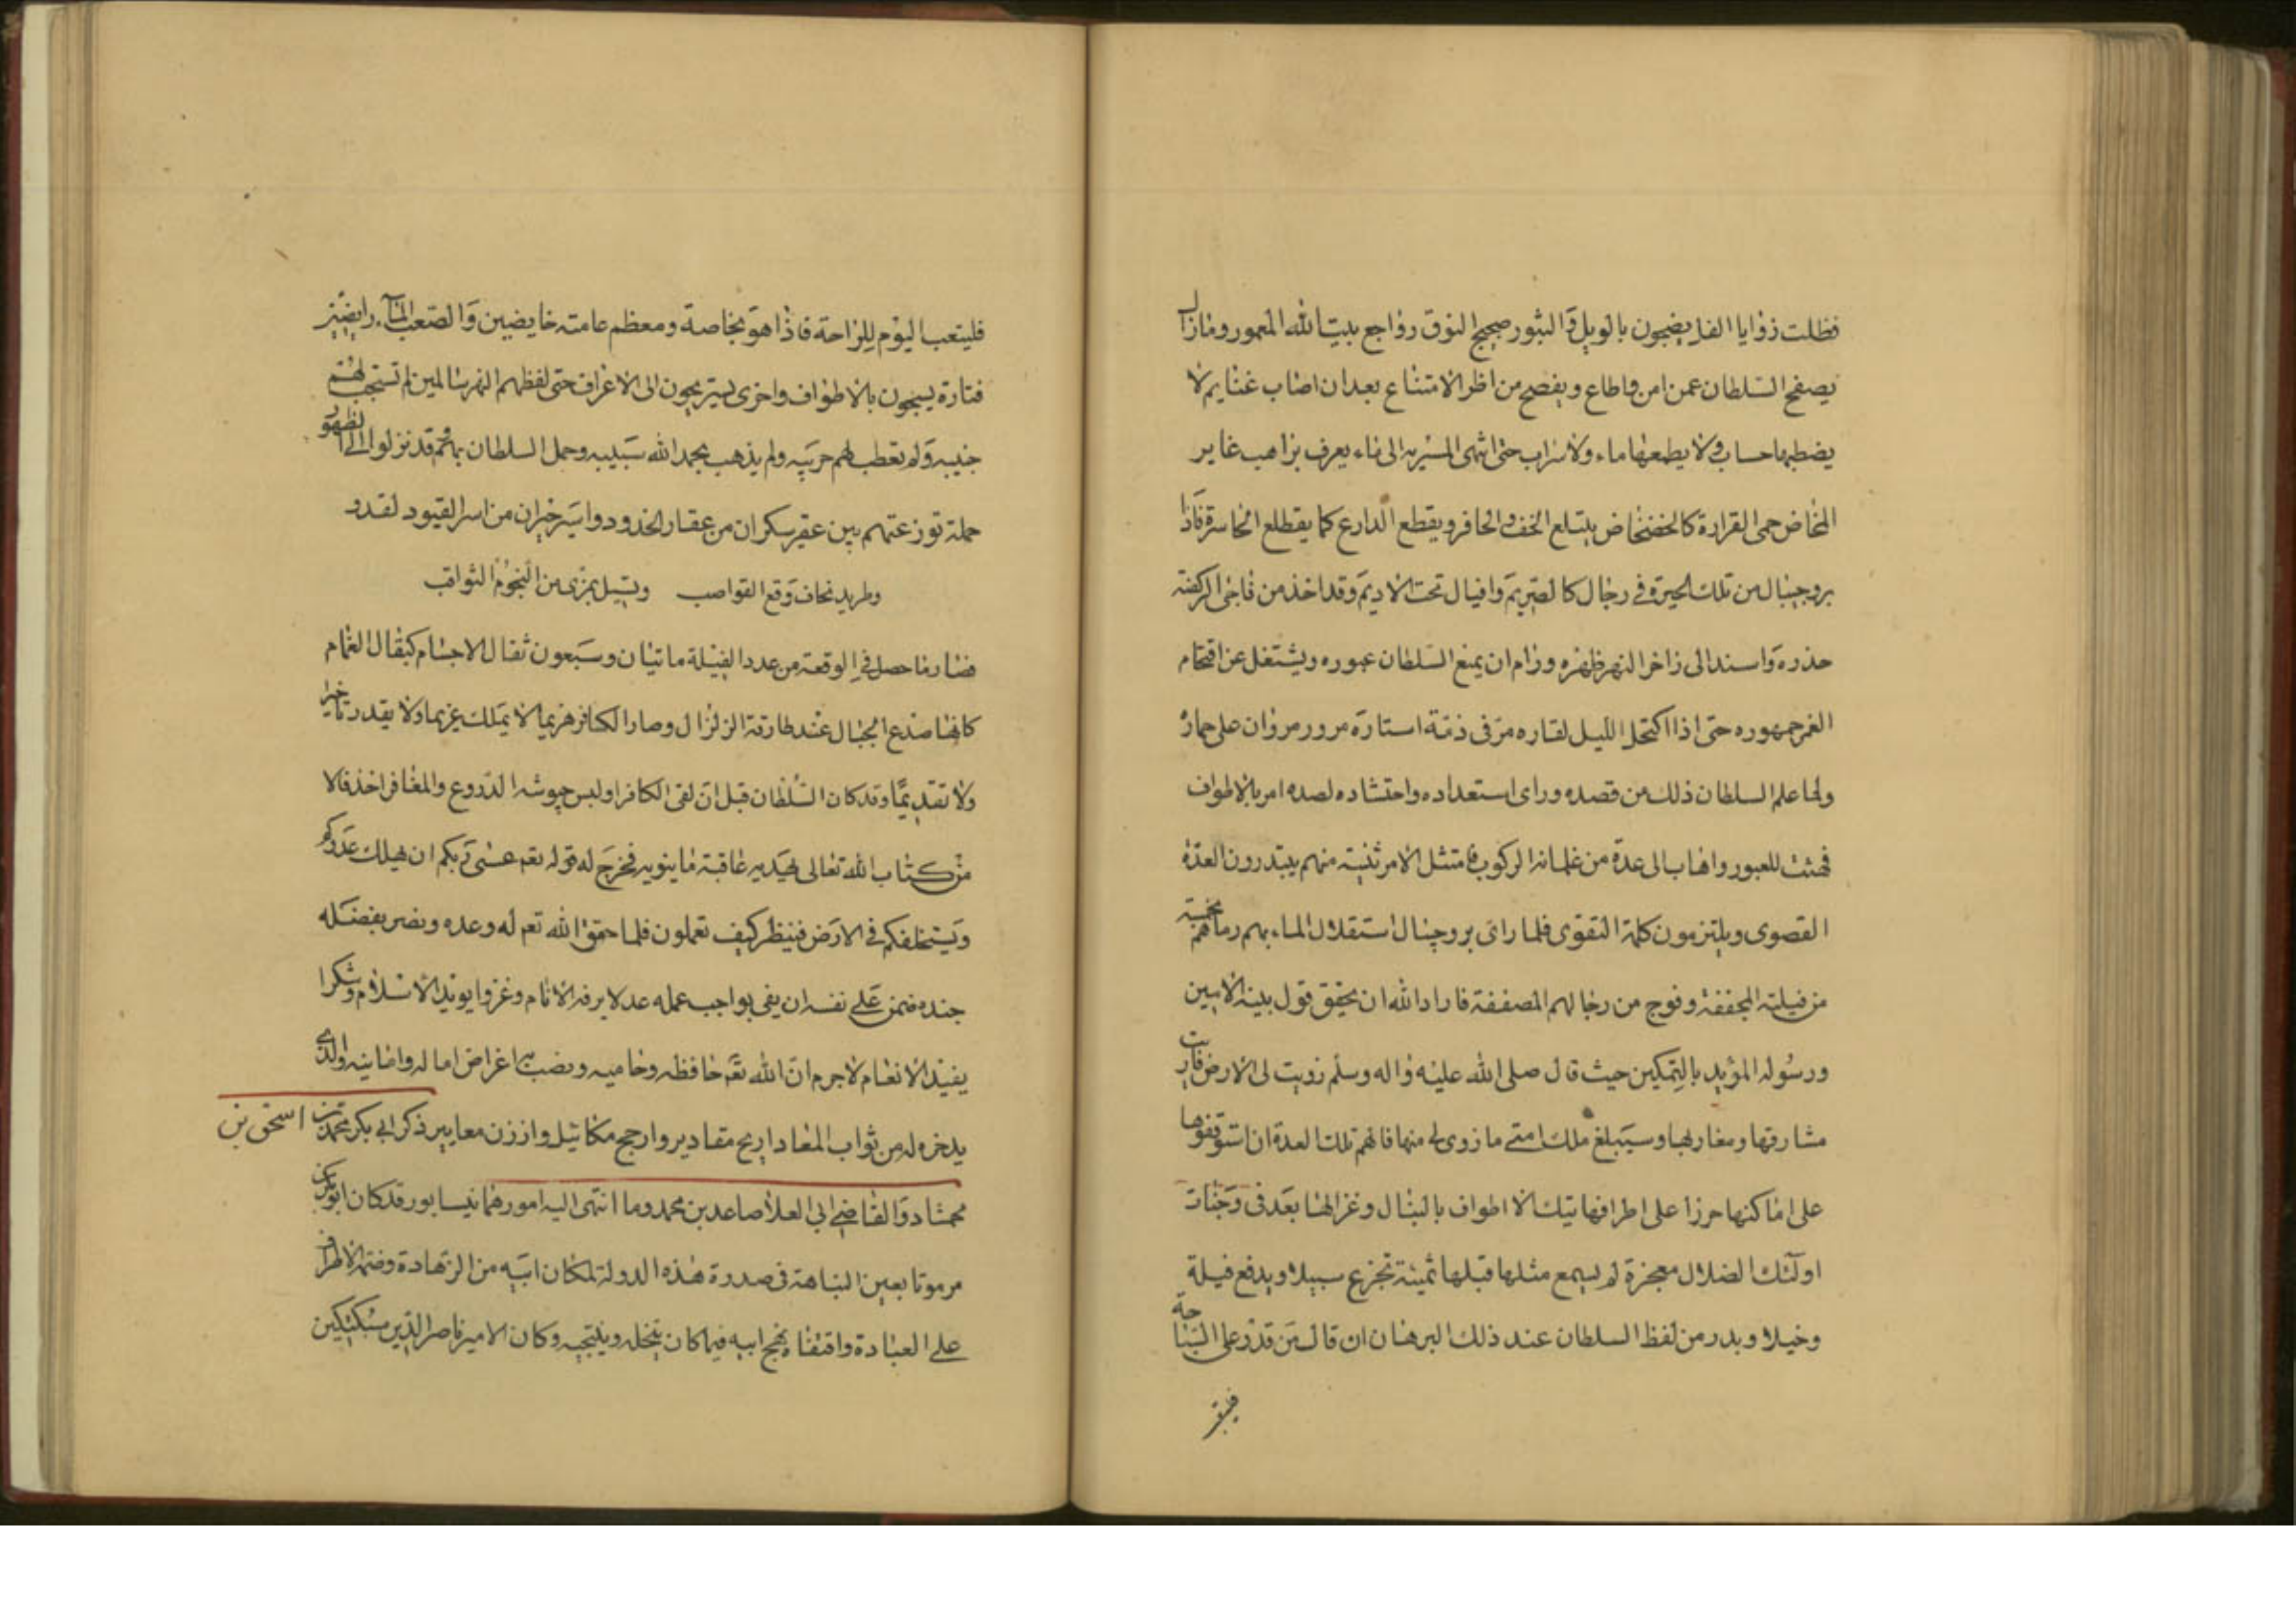 فظلت زوايا الفلا يضجون بالويل و الثبور ضجيج النوق رواجع بيت الله المعمور ومازال
يصفح السلطان عمن امن واطاع ويفصح من اظر الامتناع بعد ان اصاب غنايم لا
يضطبها حساب ولا يطمعها ماء ولا شراب حتى انتهى المسير به الى ماء يعرف براهب غاير
المخاض حمى القرارة كالخضخاض يبتلع الخف والحافر ويقطع الدارع كما يقطلع الحاسرة فاذا
بروجيبال من تلك الحيرة في رجال كالصريم وافيال تحت الاديم وقد اخذ من فاجى الركضة
حذره واسند الى زاخر النهر ظهره ورام ان يمنع السلطان عبوره ويشتغل عن اقتحام
الغمر جمهوره حتى اذا اكتحل الليل لقاره مر في ذمة استاره مرور مروان على حمار
ولما علم السلطان ذلك من قصده وراى استعداده واحتشاده لصده امر بالاطواف
فهيئت للعبور واهاب الى عدة من غلمانه الركوب فامتثل الامر ثمنية منهم يبتدرون العدة
القصوى ويلتزمون كلمة التقوى فلما راى بروجيبال استقلال الماء بهم رماهم بخمسة
من فيلته المجففة وفوج من رجالهم المصففة فاراد الله ان يحقق قول بينه الامين
ورسوله المؤيد بالتمكين حيث قال صلى الله عليه واله وسلم زويت لى الارض فاريت
مشارقها ومغاربها وسيبلغ ملك امتي ما زوى لى منها فالهم تلك العدة ان استوقفوها
على اماكنها حرزا على اطرافها تيك الاطواف بالنبال وغزالها بعد في وجنات
اولئك الضلال معجزة لم يسمع مثلها قبلها ثمينة تجزع سبيلا ويدفع فيلة
وخيلا وبدر من لفظ السلطان عند ذلك البرهان ان قال من قدر على السباحة
فليتعب
فليتعب اليوم للراحة فاذا هو بخاصة ومعظم عامته خايضين والصعب الماء رايضين
فتارة يسبحون بالاطواف واخرى يستريحون الى الاعراف حتى لفظهم النهر سالمين لم تستجب لهم
جنيبه ولم تعطب لهم حربيه ولم يذهب بحمد الله سبيبه وحمل السلطان بهم وقد نزلوا الى الظهور
حملة توزعتهم بين عقير سكران من عقار الخدود واسير خيران من اسر القيود لقدود
وطريد نخاف وقع القواصب    ويسيل بمرى من النجوم الثواقب
فصار ما حصل في الوقعة من عدد الفيلة مائتان وسبعون ثقال الاجسام كثقال الغمام
كانها صدع الجبال عند طارقة الزلزال وصار الكافر هزيما لا يملك عزيما ولا يقدر تاخيرا
ولا تقديما وقد كان السلطان قبل ان لقى الكافر اولبس جيوشه الدروع والمغافر اخذ فالا
من كتاب الله تعالى يهديه عاقبة ما ينويه فخرج له قوله تعم عسى ربكم ان يهلك عدوكم
ويستخلفكم في الارض فينظر كيف تعملون فلما حقق الله تعم له وعده ونصر بفضله
جنده ضمن على نفسه ان يفى بواجب عمله عدلا يرفه الانام وغزوا يويد الاسلام وشكرا
يفيد الانعام لا جرم ان الله تعم حافظه وحاميه ومصيب بها اغراض اماله وامانيه والذي
يدخره له من ثواب المعاد اربح مقادير وارجح مكائيل واوزن معايير ذكر ابي بكر محمد بن اسحق بن
محمشاد والقاضي ابي العلا صاعد بن محمد وما انتهى اليه امورهما نيسابور قد كان ابو بكر
مرموقا بعين النباهة في صدرة هذه الدولة لمكان ابيه من الزهادة وضمه الاطراف
على العبادة واقتفاه نهج ابيه فيما كان ينحله وينتجيه وكان الامير ناصر الدين سبكتكين